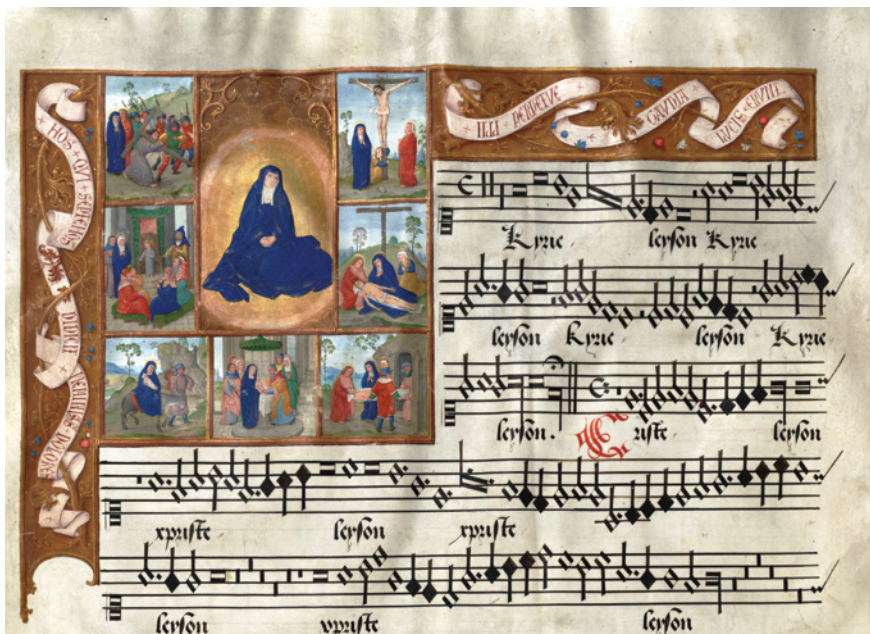 HOS + QVI + SEPTENOS
ILLI + PERPETVE + GAVDIA LVCIS + ERVNT
Kyrie leyson Kyrie
leyson Kyrie leyson Kyrie
leyson. Criste leyson
xpriste leyson xpriste
leyson xpriste leyson